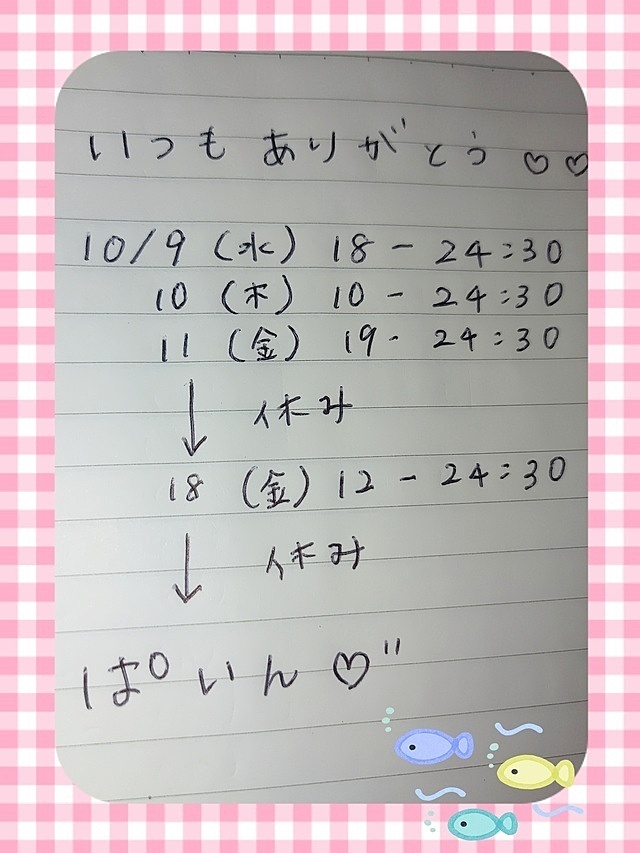 いつもありがとう♡♡
10/9（水）18－24:30
10（木）10－24:30
11（金）19－24:30
↓ 休み
18（金）12－24:30
↓ 休み
ぱいん♡"